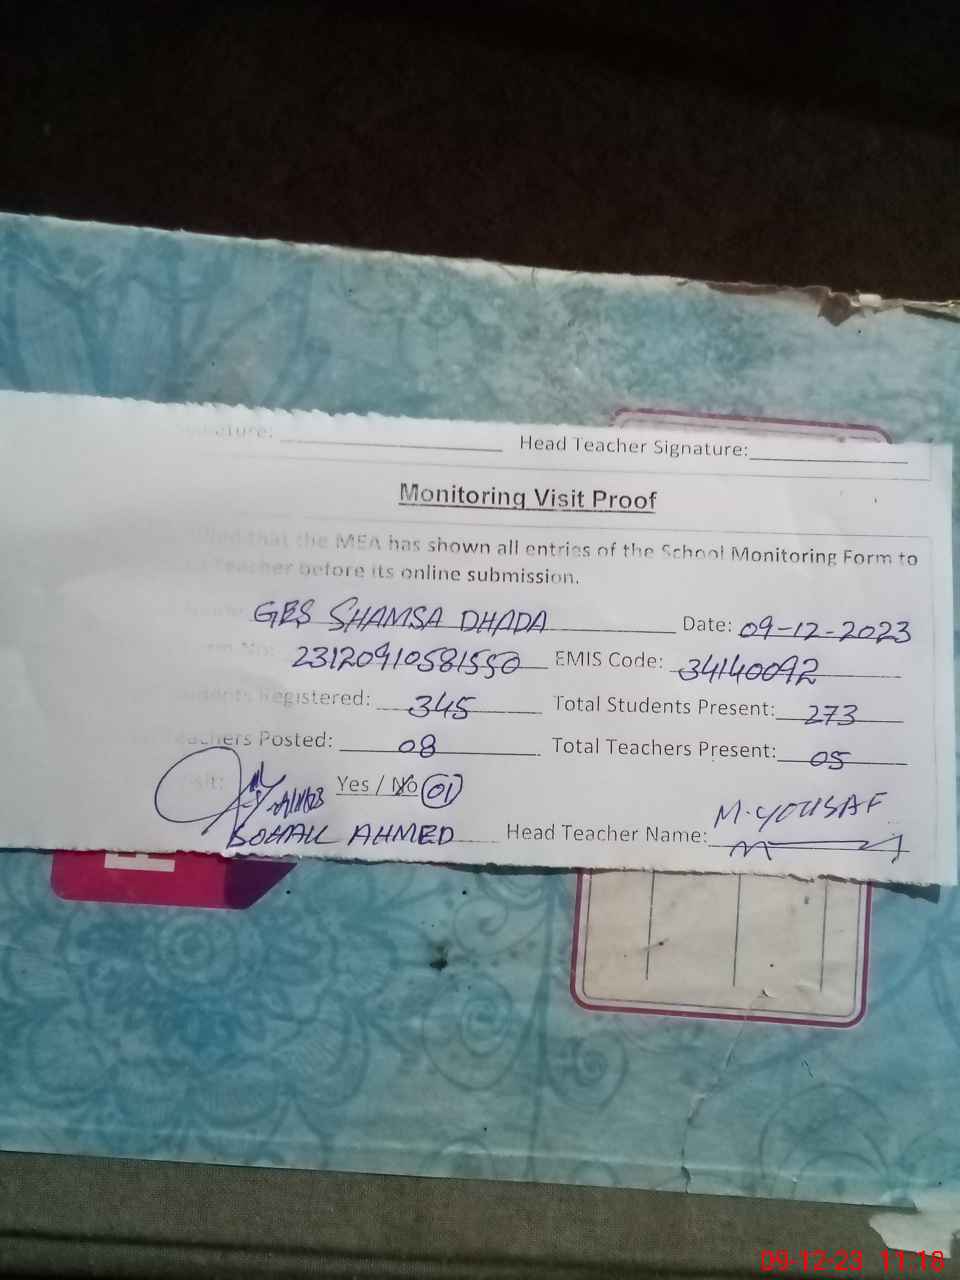 Signature: Head Teacher Signature:
Monitoring Visit Proof
that the MEA has shown all entries of the School Monitoring Form to
Teacher before its online submission.
GES SHAMSA DHADA Date: 09-12-2023
No: 23120910581550 EMIS Code: 34140092
Students Registered: 345 Total Students Present: 273
Teachers Posted: 08 Total Teachers Present: 05
Visit: Yes / No 01
SOHAIL AHMED Head Teacher Name: M. YOUSAF
09-12-23 11:18